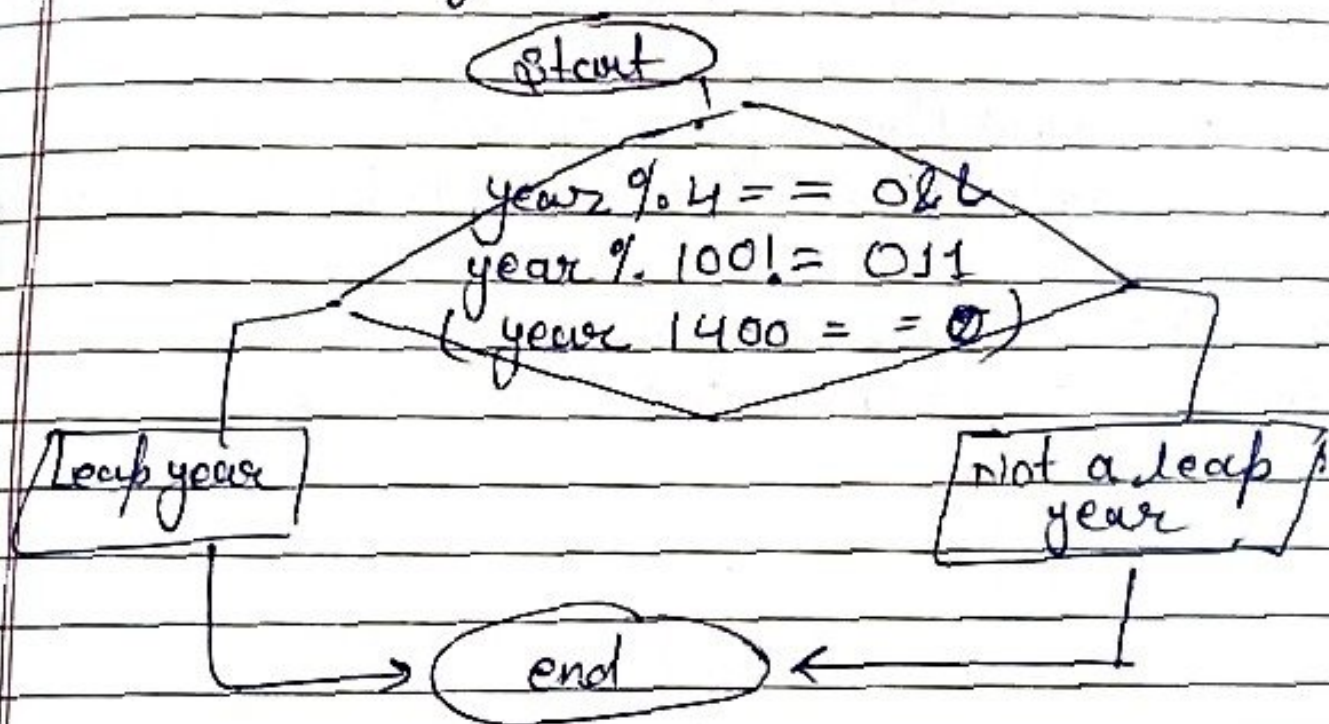 Start
year % 4 = = 0 &&
year % 100! = 0 11
( year 1400 = = 0 )
Leap year
Not a leap
year
end